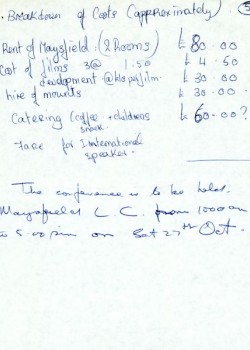 . Breakdown of Costs (approximately)
Rent of Maysfield : (2 Rooms) £80.00
Cost of films 3@ 1.50 £ 4.50
development @ £10 per film £ 30.00
hire of mounts £ 30.00
Catering (coffee + childrens £60.00?
snack.
Fare for 1 International
speaker.
The conference is to be held
Maysfield L.C. from 10.00am
to 5.00pm on Sat 27th Oct.